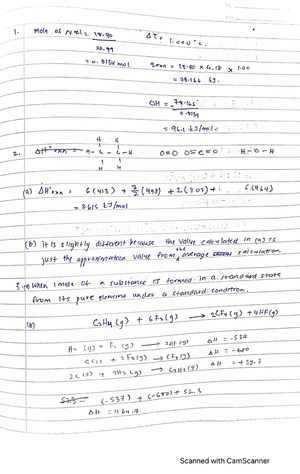 1. Mole of NaCl = 18.70 ΔT = 1.000°c
22.99
= 0.8134 mol qrxn = 18.70 × 4.18 × 1.00
= 78.166 kJ.
ΔH = 78.166
0.8134
= 96.1 kJ/mole
H H
2. ΔH°rxn = H - C - C - H O=O O=C=O H-O-H
H H
(a) ΔH°rxn = 6(413) + 7/2(498) + 2(
= 8615 kJ/mol
(b) It is slightly different because the value calculated in (a) is
just the approximation value from the average calculation
3. (a) When 1 mole of a substance is formed in a standard state
from its pure element under a standard condition.
(b) C2H4(g) + 6F2(g) → 2CF4(g) + 4HF(g)
H2(g) + F2(g) → 2HF(g) ΔH = -537
C(s) + 2F2(g) → CF4(g) ΔH = -680
2C(s) + 2H2(g) → C2H4(g) ΔH = +52.3
(-537) + (-680) + 52.3
ΔH = 1164.7
Scanned with CamScanner